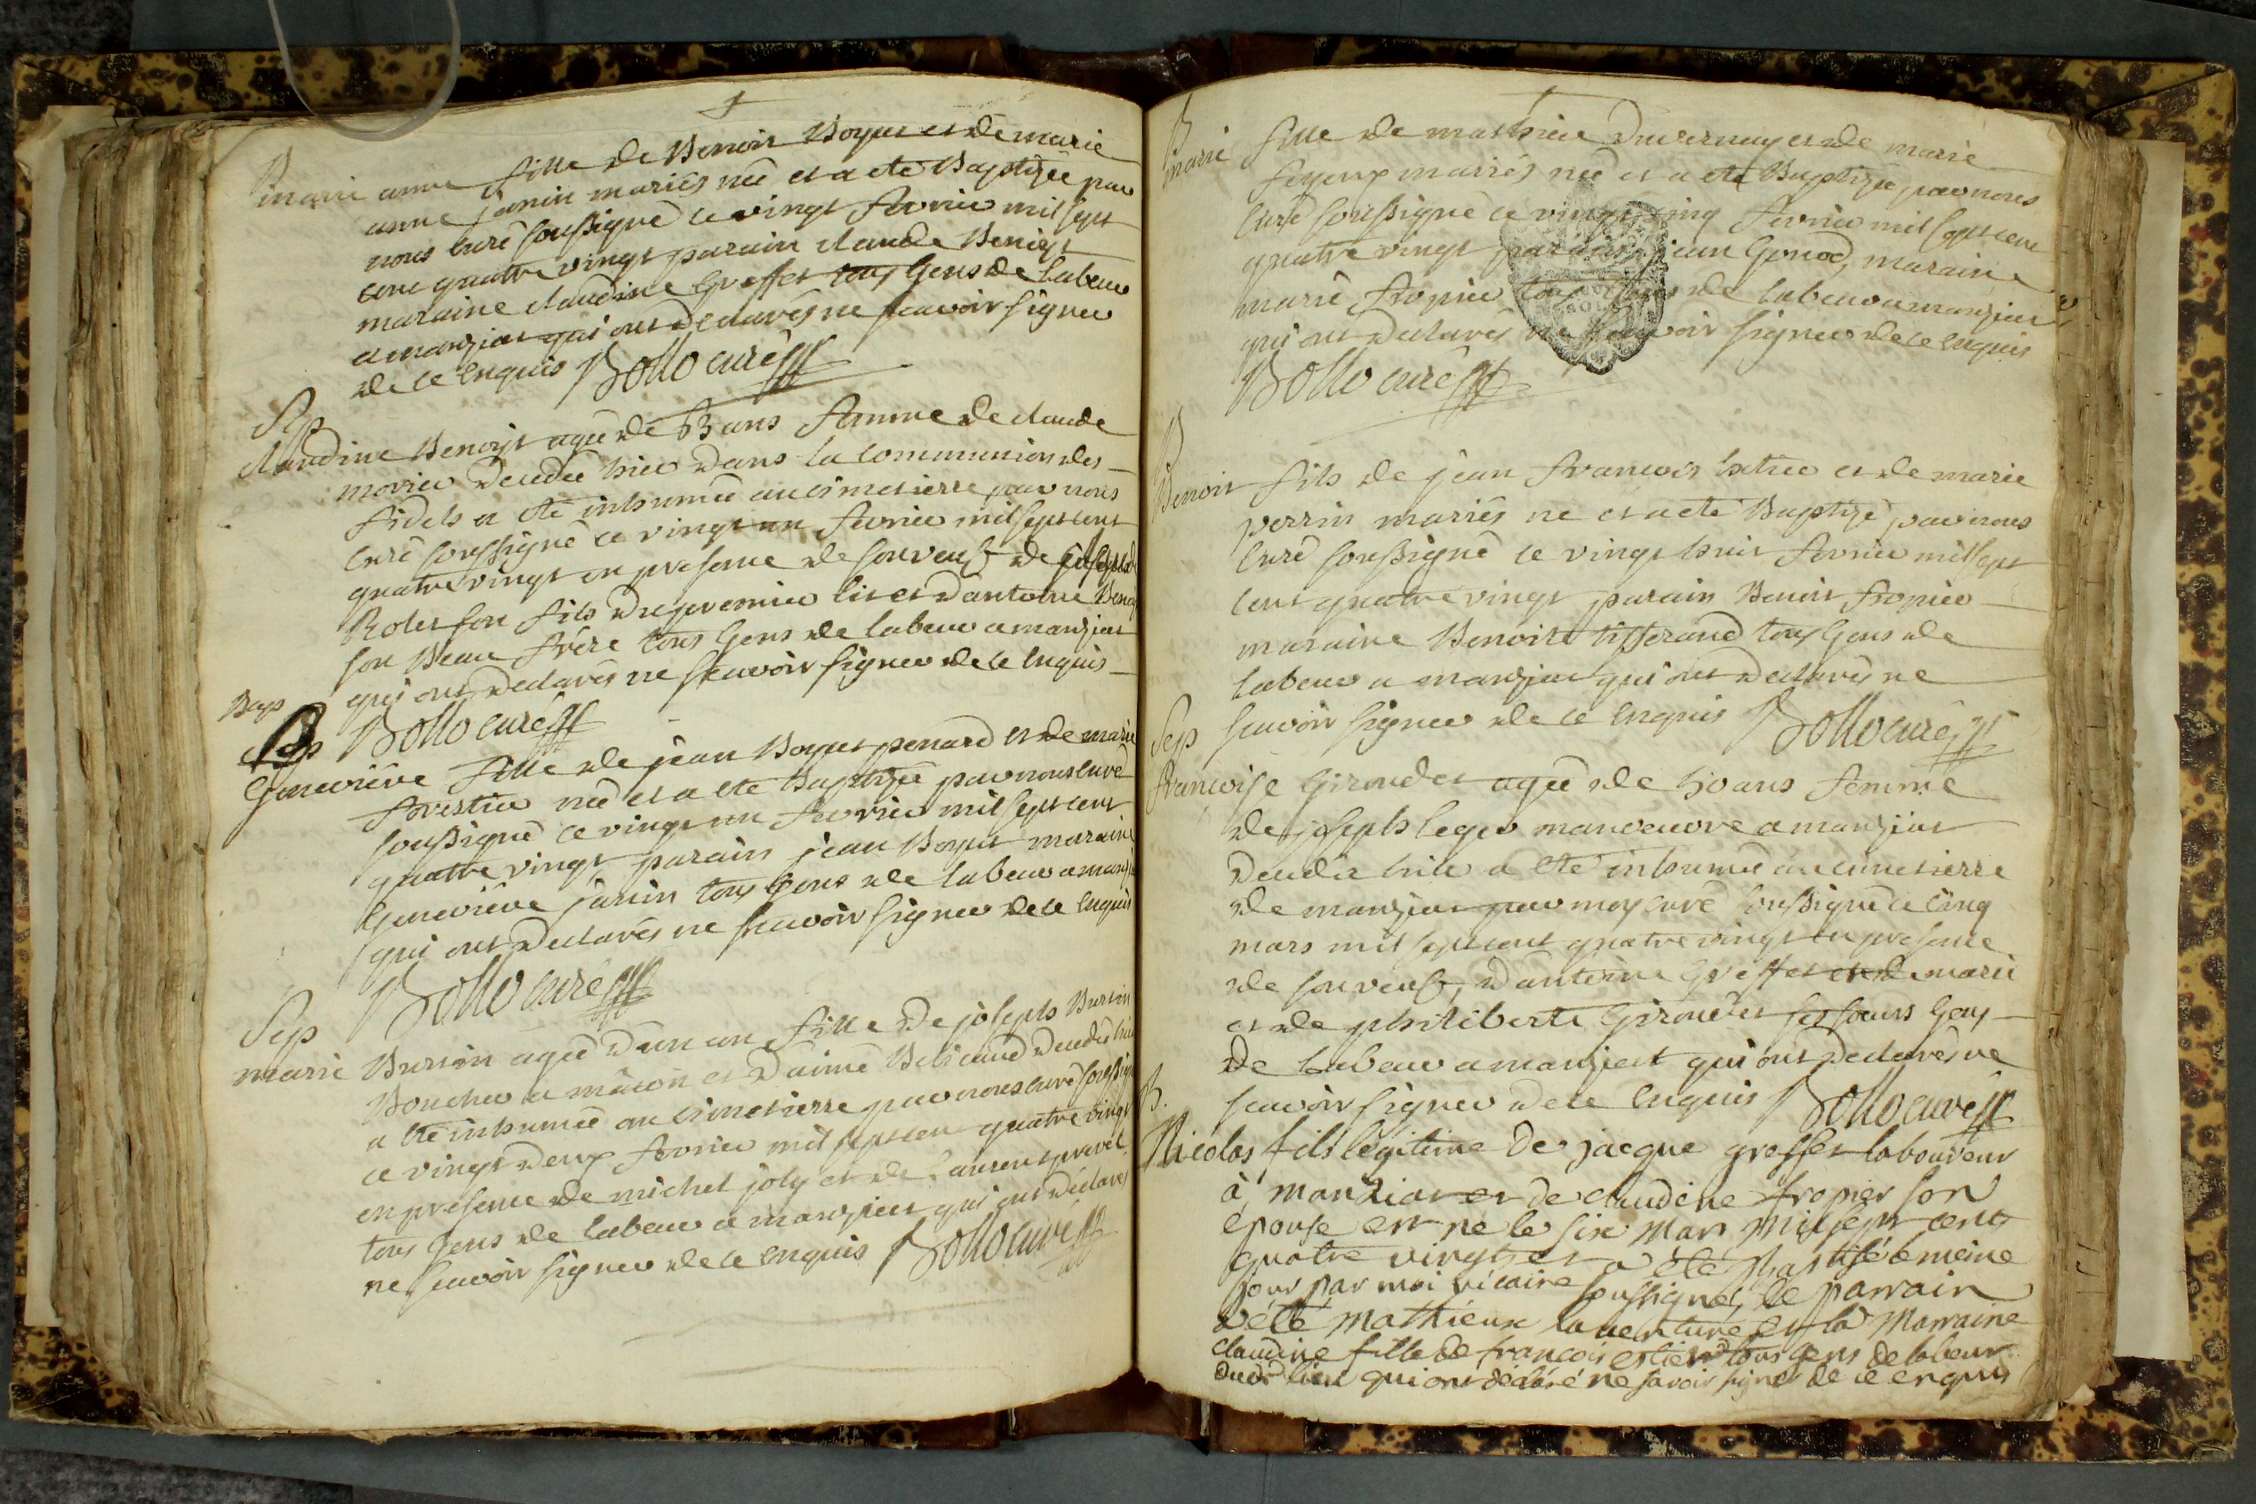 B
marie anne fille de Benoit Boyer et de marie
anne janin mariés née et a eté Baptizée par
nous curé soussigné ce vingt fevrier mil sept
cent quatre vingt parain claude Benoist
maraine claudine Greffet tous Gens de Labeur
a manziat qui ont declarés ne scavoir signer
de ce enquis Bollo curé
Sep
claudine Benoist agée de ans femme de claude
morier decedée hier dans la communion des
fidels a eté inhumée au cimetierre par nous
curé soussigné ce vingt un fevrier mil sept cent
quatre vingt en presence de son veuf de joseph
Rolet son fils du premier lit et d'antoine Benoist
son Beau frére tous Gens de labeur a manziat
qui ont declarés ne scavoir signer de ce enquis
Bollo curé
Bap
Genevieve fille de jean Boyer penard et de marie
forestier née et a eté Baptizée par nous curé
soussigné ce vingt un fevrier mil sept cent
quatre vingt parain jean Boyer maraine
Genevieve janin tous Gens de labeur a manziat
qui ont declarés ne scavoir signer de ce enquis
Bollo curé
Sep
marie Burtin agée d'un an fille de joseph Burtin
Boucher a mâcon et d'aimé decedée hier
a eté inhumée au cimetierre par nous curé soussigné
ce vingt deux fevrier mil sept cen quatre vingt
en presence de michel joly et de Laurent
tous Gens de labeur a manziat qui ont declarés
ne scavoir signer de ce enquis Bollo curé
B
marie fille de mathieu Duvernay et de marie
feyeux mariés née et a eté Baptizée par nous
curé soussigné ce vingt cinq fevrier mil sept cent
quatre vingt parain jean Gonod, maraine
marie fropier tous Gens de labeur a manziat
qui ont declarés ne scavoir signer de ce enquis
Bollo curé
B
Benoit fils de jean francois et de marie
perrin mariés né et a eté Baptizé par nous
curé soussigné ce vingt huit fevrier mil sept
cent quatre vingt parain Benoit fropier
maraine Benoite tisserand tous Gens de
labeur a manziat qui ont declarés ne
scavoir signer de ce enquis Bollo curé
Sep
françoise Giroudet agée de 50 ans femme
de joseph leger manoeuvre a manziat
decedée hier a eté inhumée au cimetierre
de manziat par moy curé soussigné ce cinq
mars mil sept cent quatre vingt en presence
de son veuf, d'antoine Greffet et de marie
et de philiberte Giroudet ses soeurs Gens
de Labeur a manziat qui ont declarés ne
scavoir signer de ce enquis Bollo curé
B.
Nicolas fils légitime de jacque greffet laboureur
à manziat et de claudine fropier son
épouse est né le six mars mil sept cents
quatre vingt et a été baptisé le même
jour par moi vicaire soussigné, le parrain
a été mathieux laventure et la Marraine
claudine fille de francois tous gens de labeur
dud. lieu qui ont déclaré ne savoir signer de ce enquis